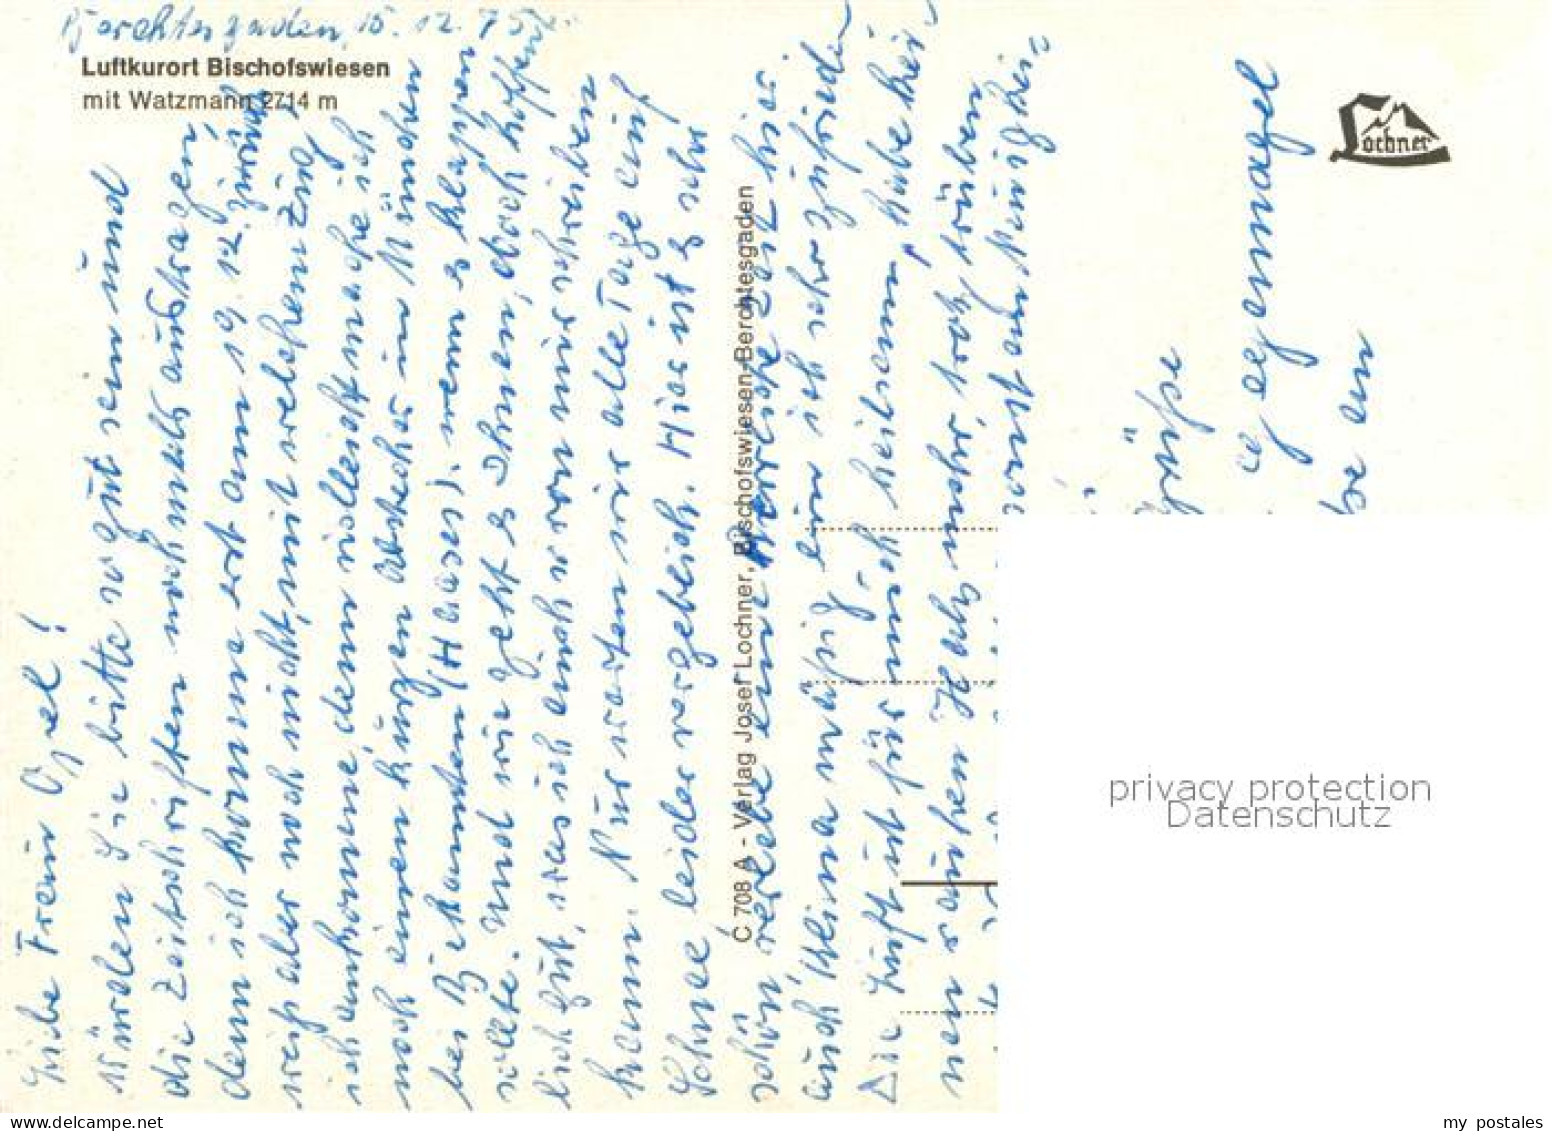 Berchtesgaden, 15. 12. 75
Luftkurort Bischofswiesen
mit Watzmann 2714 m
Lochner
Liebe Frau Opel!
Würden Sie bitte so gut sein und
die Zeitschriften noch mals austragen,
denn ich komme erst am 19. 12. zurück
weiß aber noch nicht, mit welchem Zug
ich ankomme, denn vielleicht mache ich
noch einen kurzen Abstecher in München
bei Bekannten (Haase), wenn es klappen
sollte. Und wie geht es Ihnen, doch hoffent-
lich gut, was ich auch von mir schreiben
kann. Nur warten wir alle Tage auf
Schnee, leider vergeblich. Hier ist es sehr
schön, verlebe eine herrliche Zeit hier.
Auch klima mäßig bin ich sehr zufrieden
Die Luft ist für mich heilsam, habe kei-
nen
trotz trüben
C 708 A - Verlag Josef Lochner, Bischofswiesen-Berchtesgaden
Grüße
Ihre
privacy protection
Datenschutz
delcampe.net
my_postales